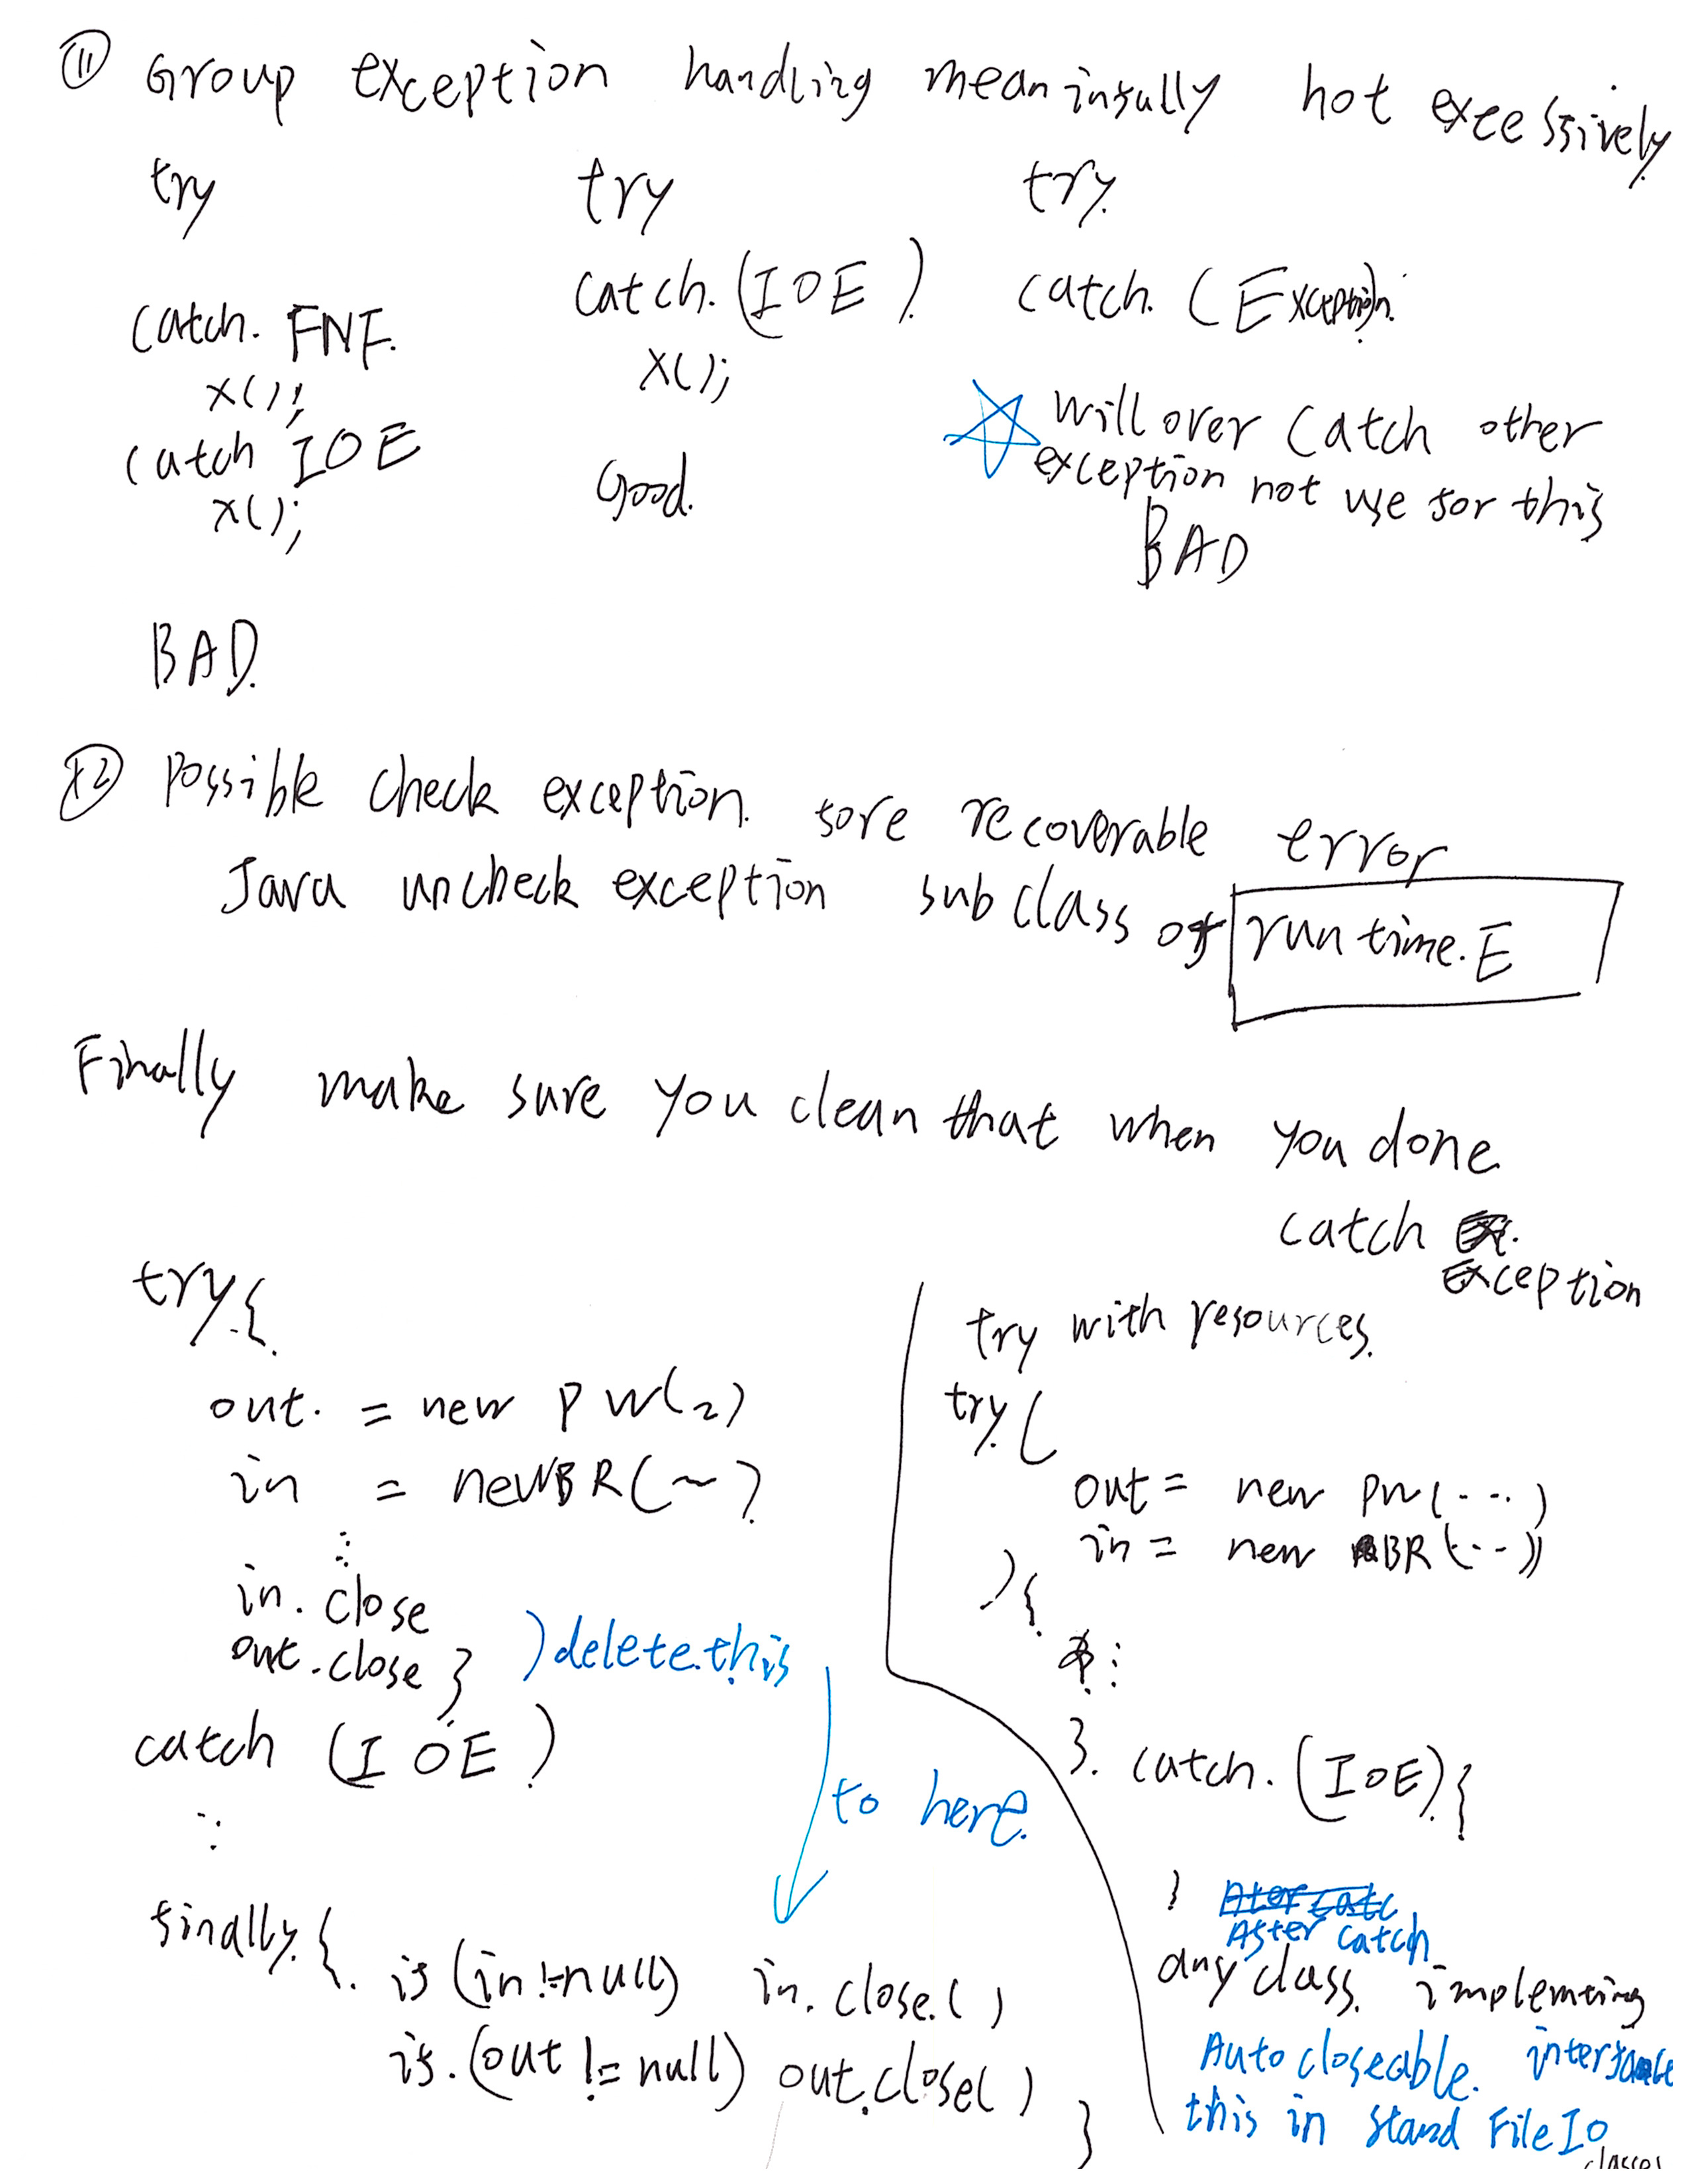 ⑪ Group exception handling meaninfully not excessively
try
catch. FNF.
x();
catch IOE
x();
BAD.
try
catch. (IOE)
x();
Good.
try.
catch. (Exception).
☆ will over catch other
exception not use for this
BAD
⑫ Possible check exception. fore recoverable error
Java uncheck exception subclass of run time. E
Finally make sure you clean that when you done
catch
Exception
try {.
out. = new PW(~)
in = new BR(~)
⋮
in. close
out. close }
) delete. this
to here.
catch (IOE)
⋮
finally. {.
if (in != null) in. close. ()
if. (out != null) out. close()
}
try with resources.
try (
out = new PW(...)
in = new BR(...))
) {
⋮
}. catch. (IOE) {
}
After catch
any class. implemting
Auto closeable. interface
this in stand File IO
classes